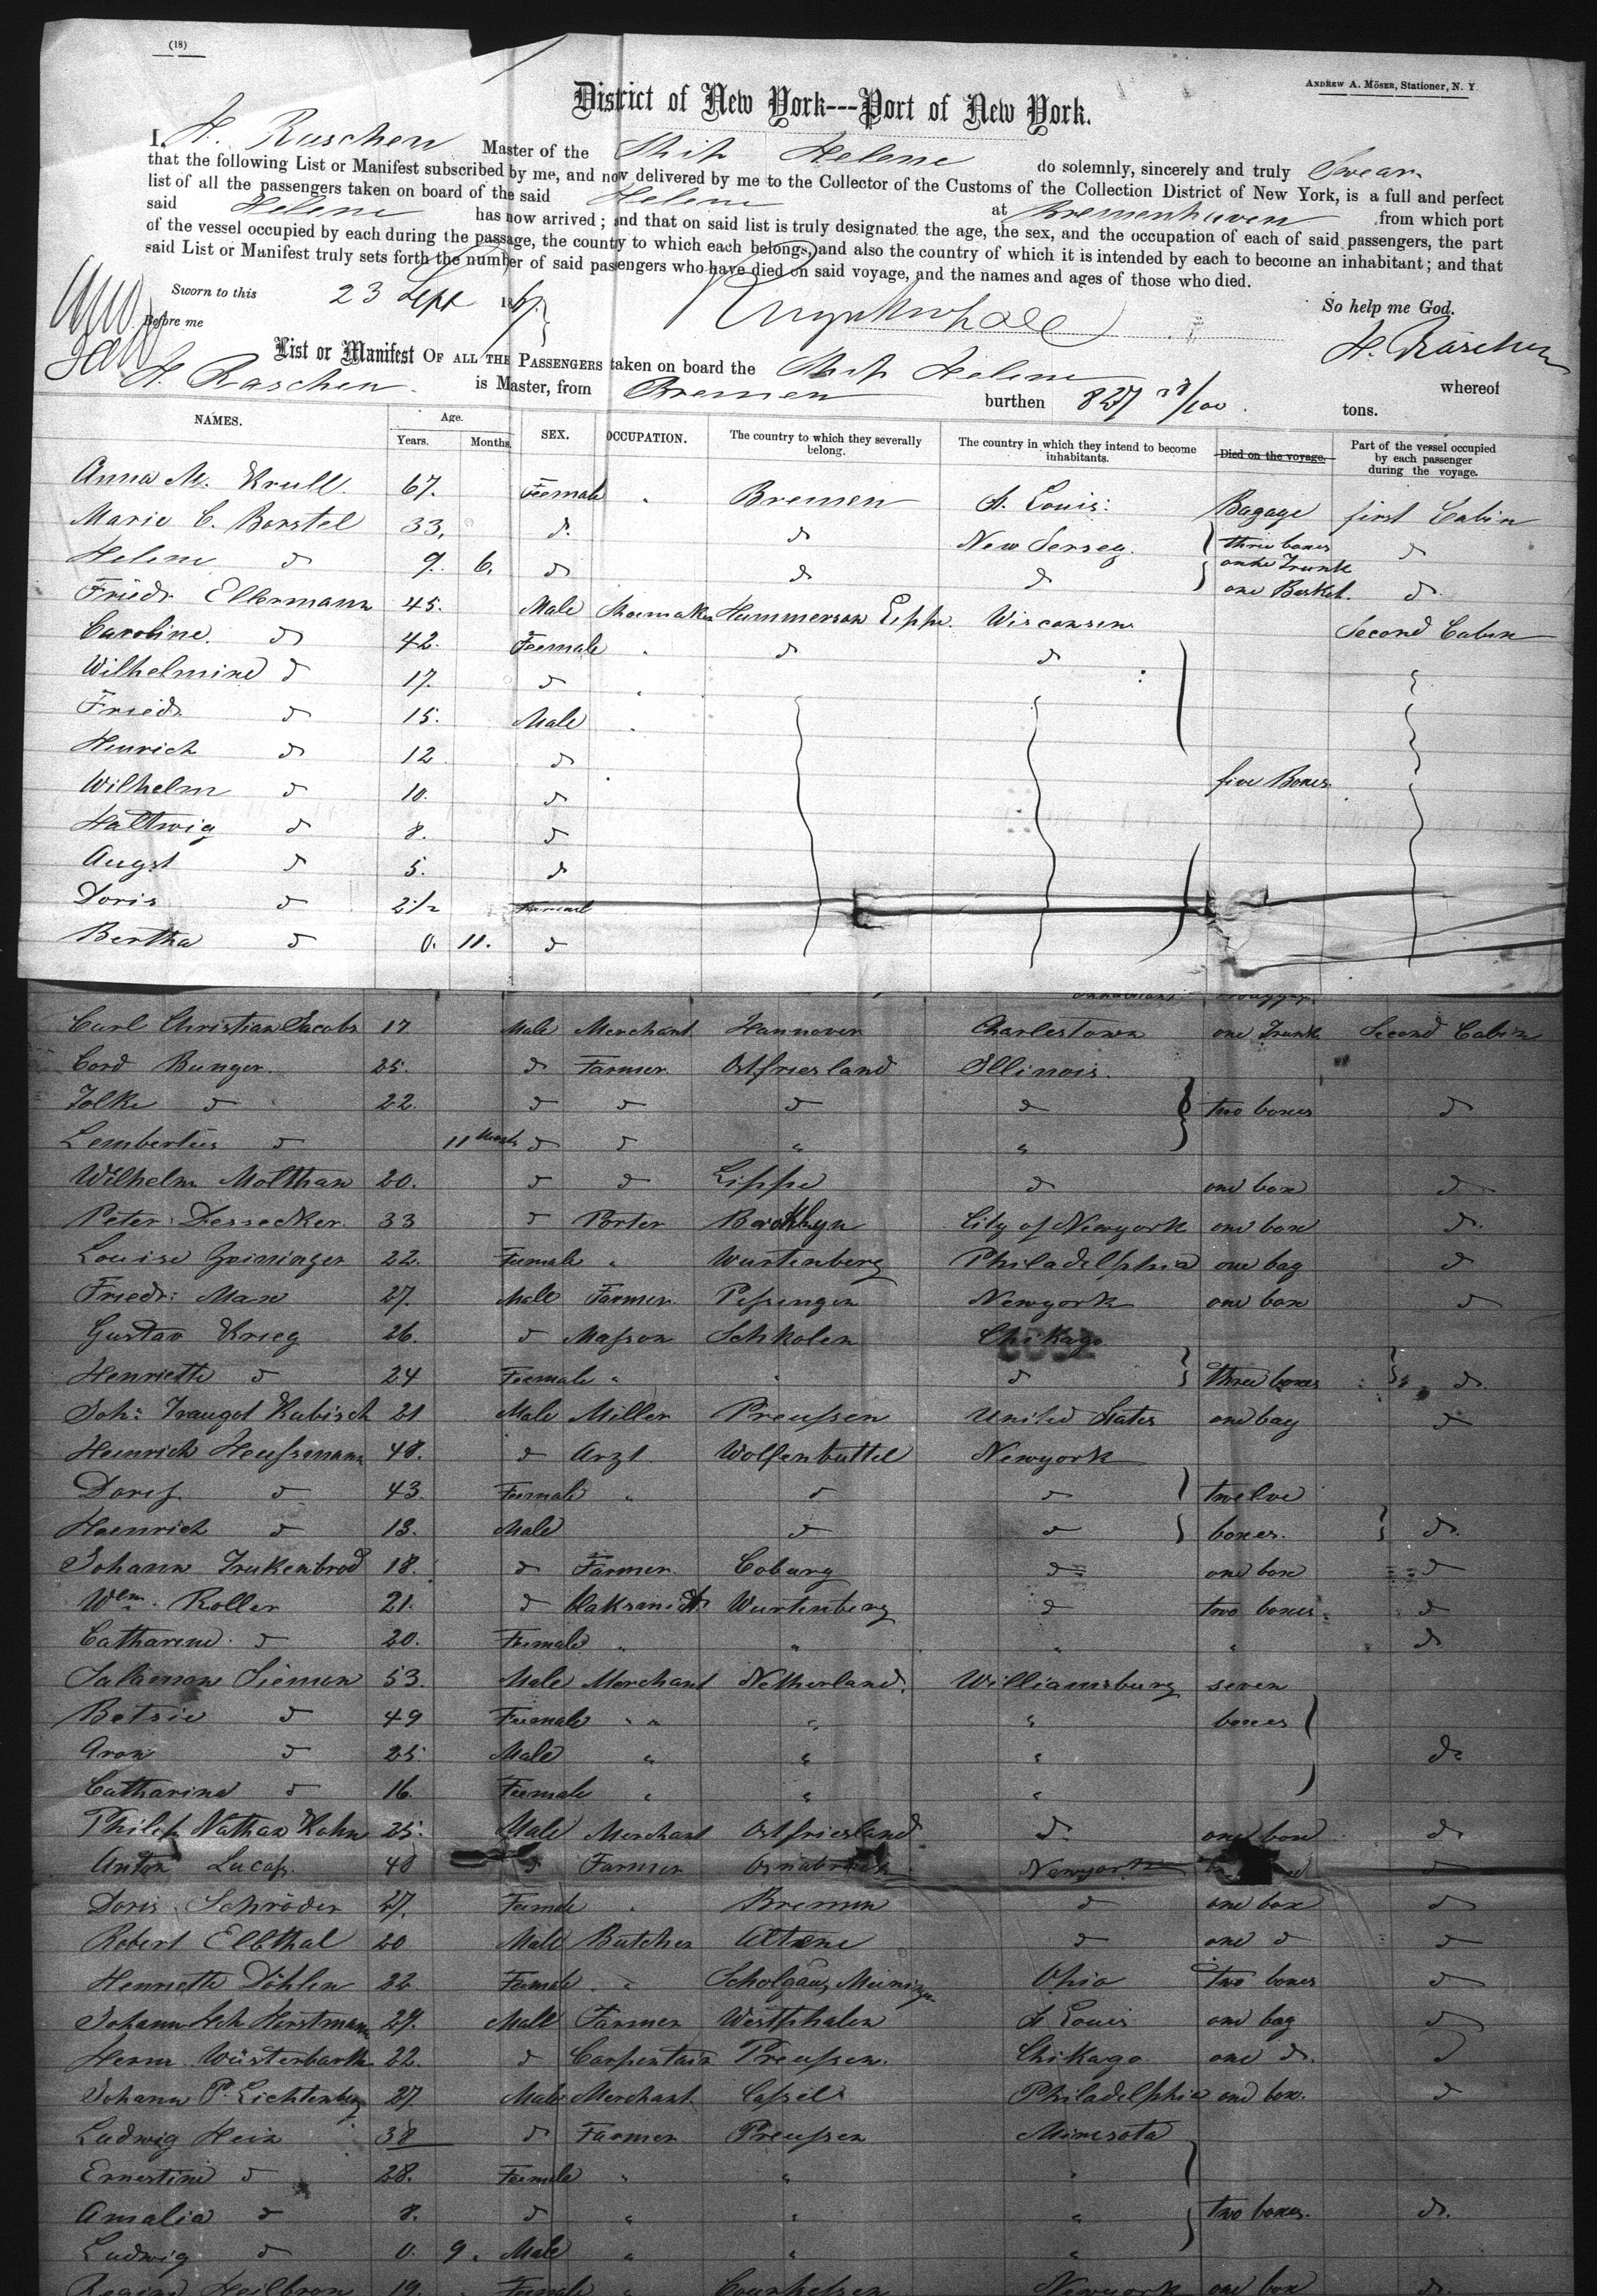 (18)
ANDREW A. MÖSER, Stationer, N. Y.
District of New York---Port of New York.
I, H. Raschen Master of the Ship Helene do solemnly, sincerely and truly Swear
that the following List or Manifest subscribed by me, and now delivered by me to the Collector of the Customs of the Collection District of New York, is a full and perfect
list of all the passengers taken on board of the said Helene at Bremenhaven from which port
said Helene has now arrived; and that on said list is truly designated the age, the sex, and the occupation of each of said passengers, the part
of the vessel occupied by each during the passage, the county to which each belongs, and also the country of which it is intended by each to become an inhabitant; and that
said List or Manifest truly sets forth the number of said passengers who have died on said voyage, and the names and ages of those who died.
Sworn to this 23 Sept 1867. So help me God.
Before me H. Raschen
List or Manifest OF ALL THE PASSENGERS taken on board the Ship Helene whereof
H. Raschen is Master, from Bremen burthen 827 /100 tons.
NAMES. Age. Years. Months. SEX. OCCUPATION. The country to which they severally belong. The country in which they intend to become inhabitants. Died on the voyage. Part of the vessel occupied by each passenger during the voyage.
Anna M. Krull. 67. Feemale " Bremen St. Louis. Bagage first Cabin
Marie C. Borstel 33. do do New Jersey. three boxes do
Helene do 9. 6. do do do one Trunk one Basket. do
Friedr Ellermann 45. Male Shoemaker Hummersen Lippe. Wisconsin Second Cabin
Caroline. do 42. Feemale " do do
Wilhelmine do 17. do "
Friedr do 15. Male "
Heinrich do 12 do
Wilhelm do 10. do five Boxes.
Hattwig do 8. do
Augst do 5. do
Doris do 2 1/2 Feemale
Bertha do 0. 11. do
inhabitants Baggage
Carl Christian Jacobs 17 Male Merchant Hannover Charlestown one Trunk Second Cabin
Cord Bunger. 25. do Farmer Ostfriesland Illinois.
Folke do 22. do do do do two boxes do
Lembertus do 11 Month do do " "
Wilhelm Molthan 20. do do Lippe do one box do
Peter Dessecker 33 do Porter City of Newyork one box do.
Louise 22. Feemale " Wurtenberg Philadelphia one bag do
Friedr: Man 27. Male Farmer Newyork one box do
Gustav Krieg 26. do Masson Schkolen Chikago
Henriette do 24 Feemale " " do three boxes do.
Joh: Traugot Kubisch 21 Male Miller Preussen United States one bag do
Heinrich Heussmann 48. do Arzt Wolfenbuttel Newyork
Doris do 43. Feemale " do do twelve
Haenrich do 13. Male do do boxes. do.
Johann Trukenbrod 18. do Farmer Coburg do one box do
Wlm. Roller 21. do Wurtenberg do two boxes do
Catharine. do 20. Feemale " " " " do
Salaemon Siemon 53. Male Merchant Netherland. Williamsburg seven
Betsie do 49 Feemale " " " " boxes
Aron do 25. Male " " " do
Catharine do 16. Feemale " " "
Philip Nathan Kahn 25. Male Merchant Ostfriesland do. one box do
Anton Lucass. 40 do Farmer Osnabruck Newyork do
Doris Schröder 27. Feemale " Bremen do one box do
Robert Elbthal 20 Male Butcher Altone do one do do
Henriette Döhlen 22. Feemale " Ohio two boxes do
Johann Hch Horstmann 27. Male Farmer Westphalen St Louis one bag do
Herm Wüsterbarth 22. do Carpentair Preussen. Chikago one do. do
Johann P. Lichtenberg 27. Male Merchant Cassel Philadelphia one box. do
Ludwig Hein 38 do Farmer Preussen Minesota
Ernestine do 28. Feemale " " "
Amalia do 8. do " " " two boxes. do.
Ludwig do 0. 9. Male " " "
Regine Heilbron 19. Feemale " Courhessen Newyork one box do.